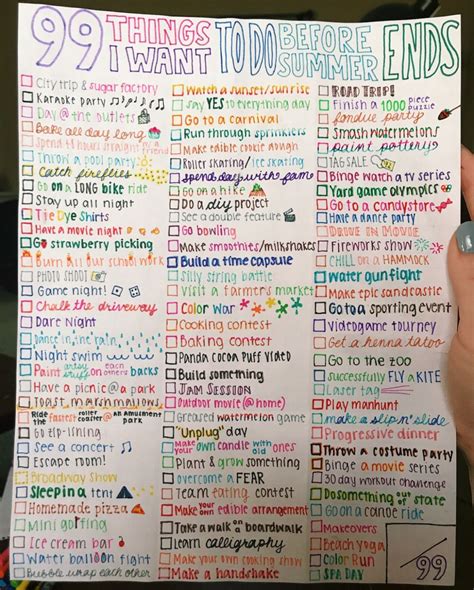 99 THINGS I WANT TO DO BEFORE SUMMER ENDS
City trip & sugar factory
Karaoke party
Day @ the outlets
Bake all day long
Spend 24 hours straight w/ a friend
Throw a pool party
Catch fireflies
Go on a LONG bike ride
Stay up all night
Tie Dye Shirts
Have a movie night
Go strawberry picking
Burn all our school work
PHOTO SHOOT
Game night!
Chalk the driveway
Dare Night
Dance in the rain
Night swim
Paint shirts on each others backs
Have a picnic @ a park
Toast marshmallows
Ride the fastest roller coaster @ an amusement park
Go zip-lining
See a concert
Escape room!
Broadway Show
Sleep in a tent
Homemade pizza
Mini golfing
Ice cream bar
Water balloon fight
Bubble wrap each other
Watch a sunset/sunrise
say YES to everything day
Go to a carnival
Run through sprinklers
Make edible cookie dough
Roller skating/ice skating
spend day with fam
Go on a hike
Do a diy project
See a double feature
Go bowling
Make smoothies/milkshakes
Build a time capsule
Silly string battle
Visit a farmers market
Color War
Cooking contest
Baking contest
Panda cocoa Puff Video
Build something
JAM SESSION
Outdoor movie (@ home)
Greased watermelon game
"Unplug" day
Make your own candle with old ones
Plant & grow something
overcome a FEAR
Team eating contest
Make your own edible arrangement
Take a walk on a boardwalk
learn calligraphy
Make your own cooking show
Make a handshake
ROAD TRIP!
Finish a 1000 piece puzzle
fondue party
Smash watermelons
paint pottery
TAG SALE
Binge watch a tv series
Yard game olympics
Go to a candystore
Have a dance party
DRIVE IN MOVIE
Fireworks show
CHILL on a HAMMOCK
Water gun fight
Make epic sandcastle
Go to a sporting event
Videogame tourney
Get a henna tatoo
Go to the zoo
successfully FLY a KITE
Laser tag
Play manhunt
make a slip n' slide
Progressive dinner
Throw a costume party
Binge a movie series
30 day workout challenge
Do something "out" of state
Go on a canoe ride
Makeovers
Beach Yoga
Color Run
SPA DAY
/99